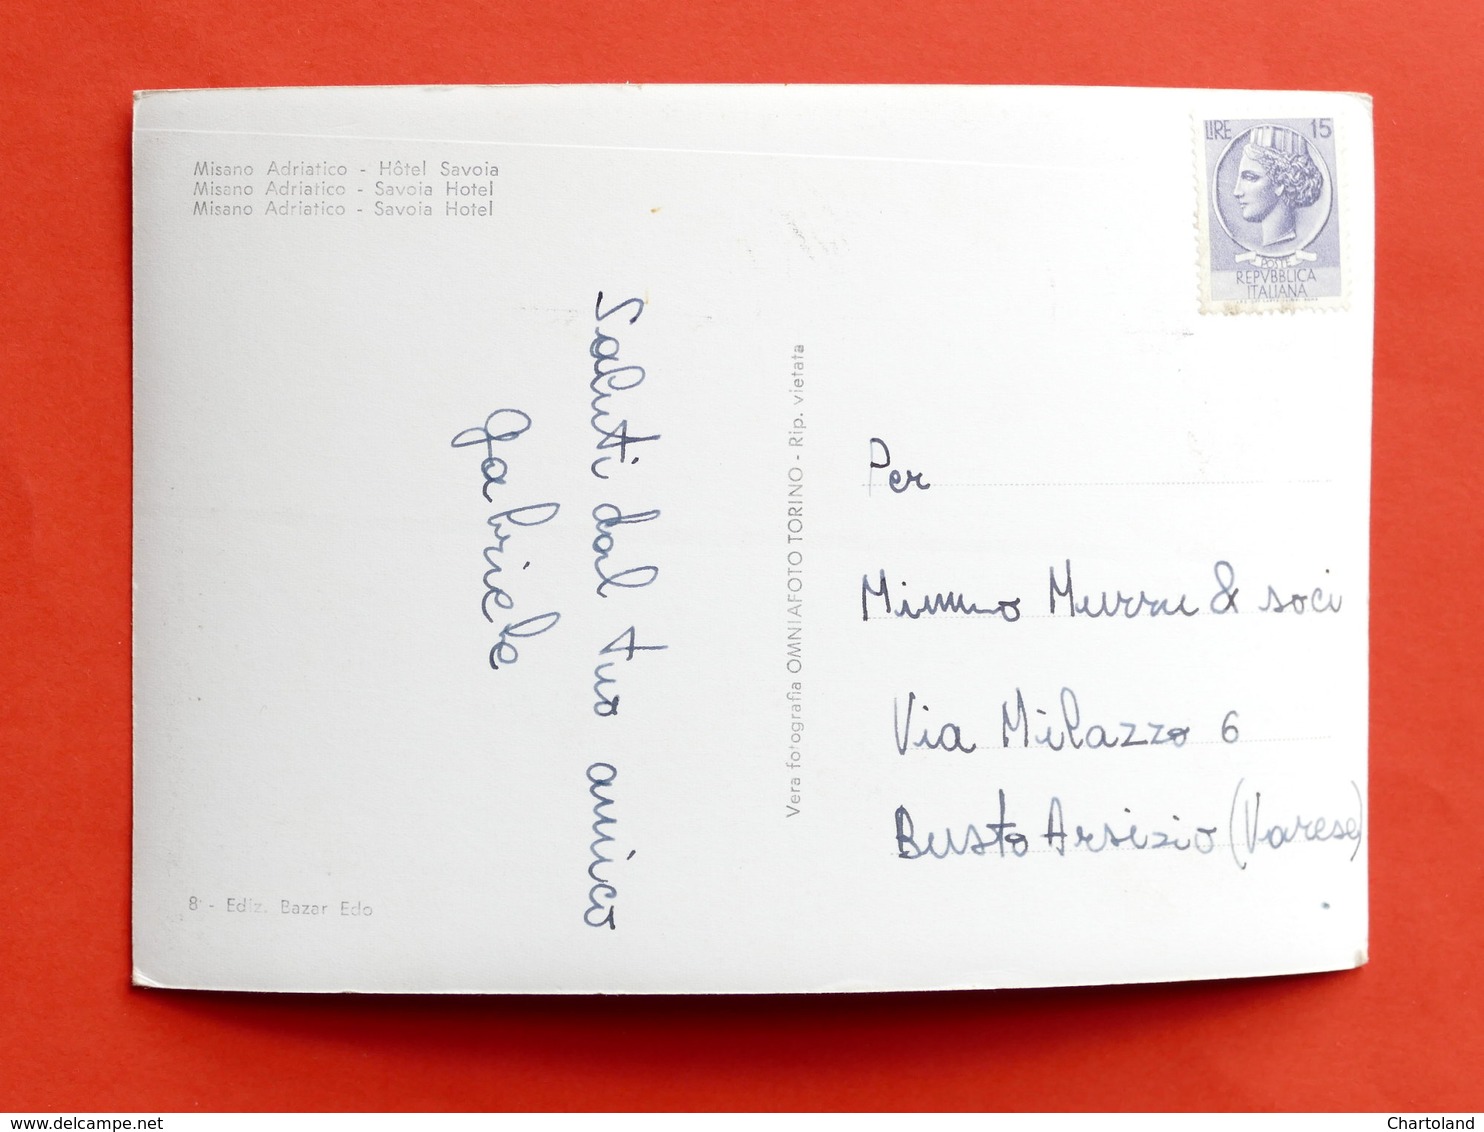 Misano Adriatico - Hôtel Savoia
Misano Adriatico - Savoia Hotel
Misano Adriatico - Savoia Hotel
LIRE 15
POSTE
REPVBBLICA
ITALIANA
Saluti dal tuo amico
Gabriele
Vera fotografia OMNIAFOTO TORINO - Rip. vietata
Per
Mimmo Murru & soci
Via Milazzo 6
Busto Arsizio (Varese)
8 - Ediz. Bazar Edo
www.delcampe.net
Chartoland